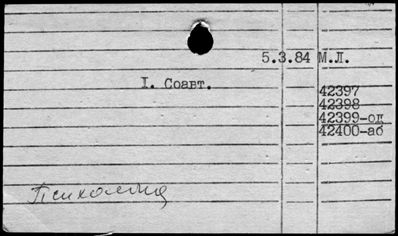 5.3.84 М.Л.
I. Соавт.
42397
42398
42399-од
42400-аб
Психология